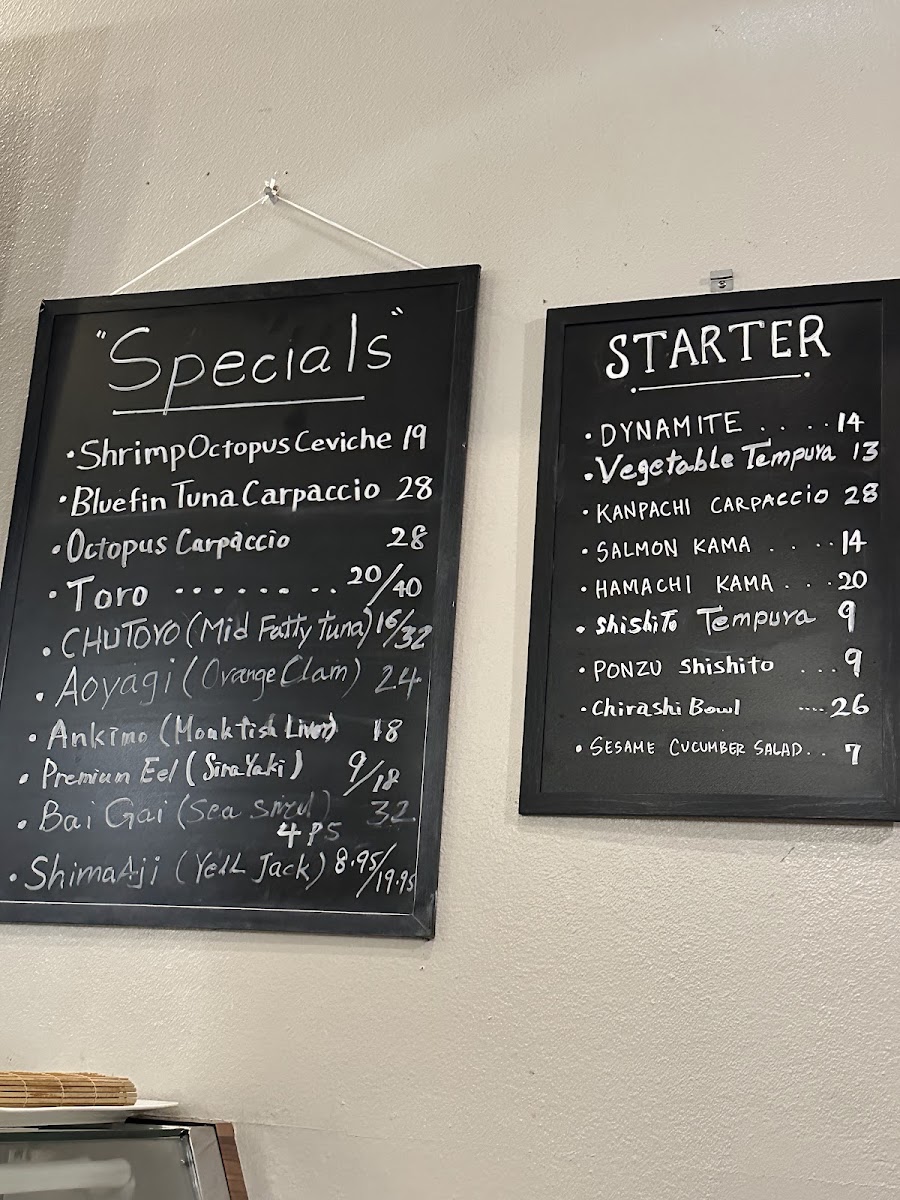 "Specials"
• Shrimp Octopus Ceviche 19
• Bluefin Tuna Carpaccio 28
• Octopus Carpaccio 28
• Toro ....... 20/40
• CHUTORO (Mid Fatty Tuna) 16/32
• Aoyagi (Orange Clam) 24
• Ankimo (Monkfish Liver) 18
• Premium Eel (SiraYaki) 9/18
• Bai Gai (Sea Snail) 32
4 PS
• ShimaAji (Yell Jack) 8.95/19.95
STARTER
• DYNAMITE .... 14
• Vegetable Tempura 13
• KANPACHI CARPACCIO 28
• SALMON KAMA .... 14
• HAMACHI KAMA ... 20
• ShiShiTo Tempura 9
• PONZU Shishito ... 9
• Chirashi Bowl .... 26
• SESAME CUCUMBER SALAD .. 7